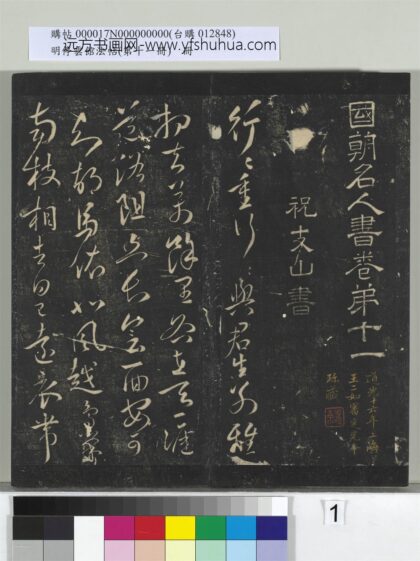 購帖 000017N000000000(台購 012848)
远方书画网-www.yfshuhua.com
國朝名人書卷弟十一
祝支山書
行〻重行〻與君生別離
相去萬餘里各在天一涯
道路阻且長會面安可
知胡馬依北風越鳥巢
南枝相去日已遠衣帶
1